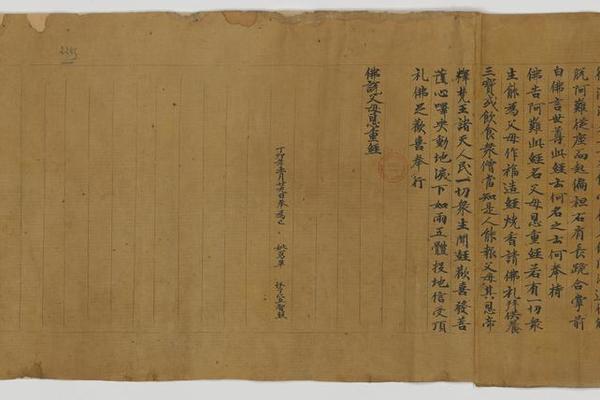 脫阿難從座而起偏袒右肩長跪合掌前
白佛言世尊此經云何名之云何奉持
佛告阿難此經名父母恩重經若有一切衆
生能為父母作福造經燒香請佛礼拜供養
三寶或飲食衆僧當知是人能報父母其恩帝
釋梵王諸天人民一切衆生聞經歡喜發菩
心嘷哭動地淚下如雨五體投地信受頂
礼佛足歡喜奉行
佛說父母恩重經
丁卯年 月廿九日奉為亡